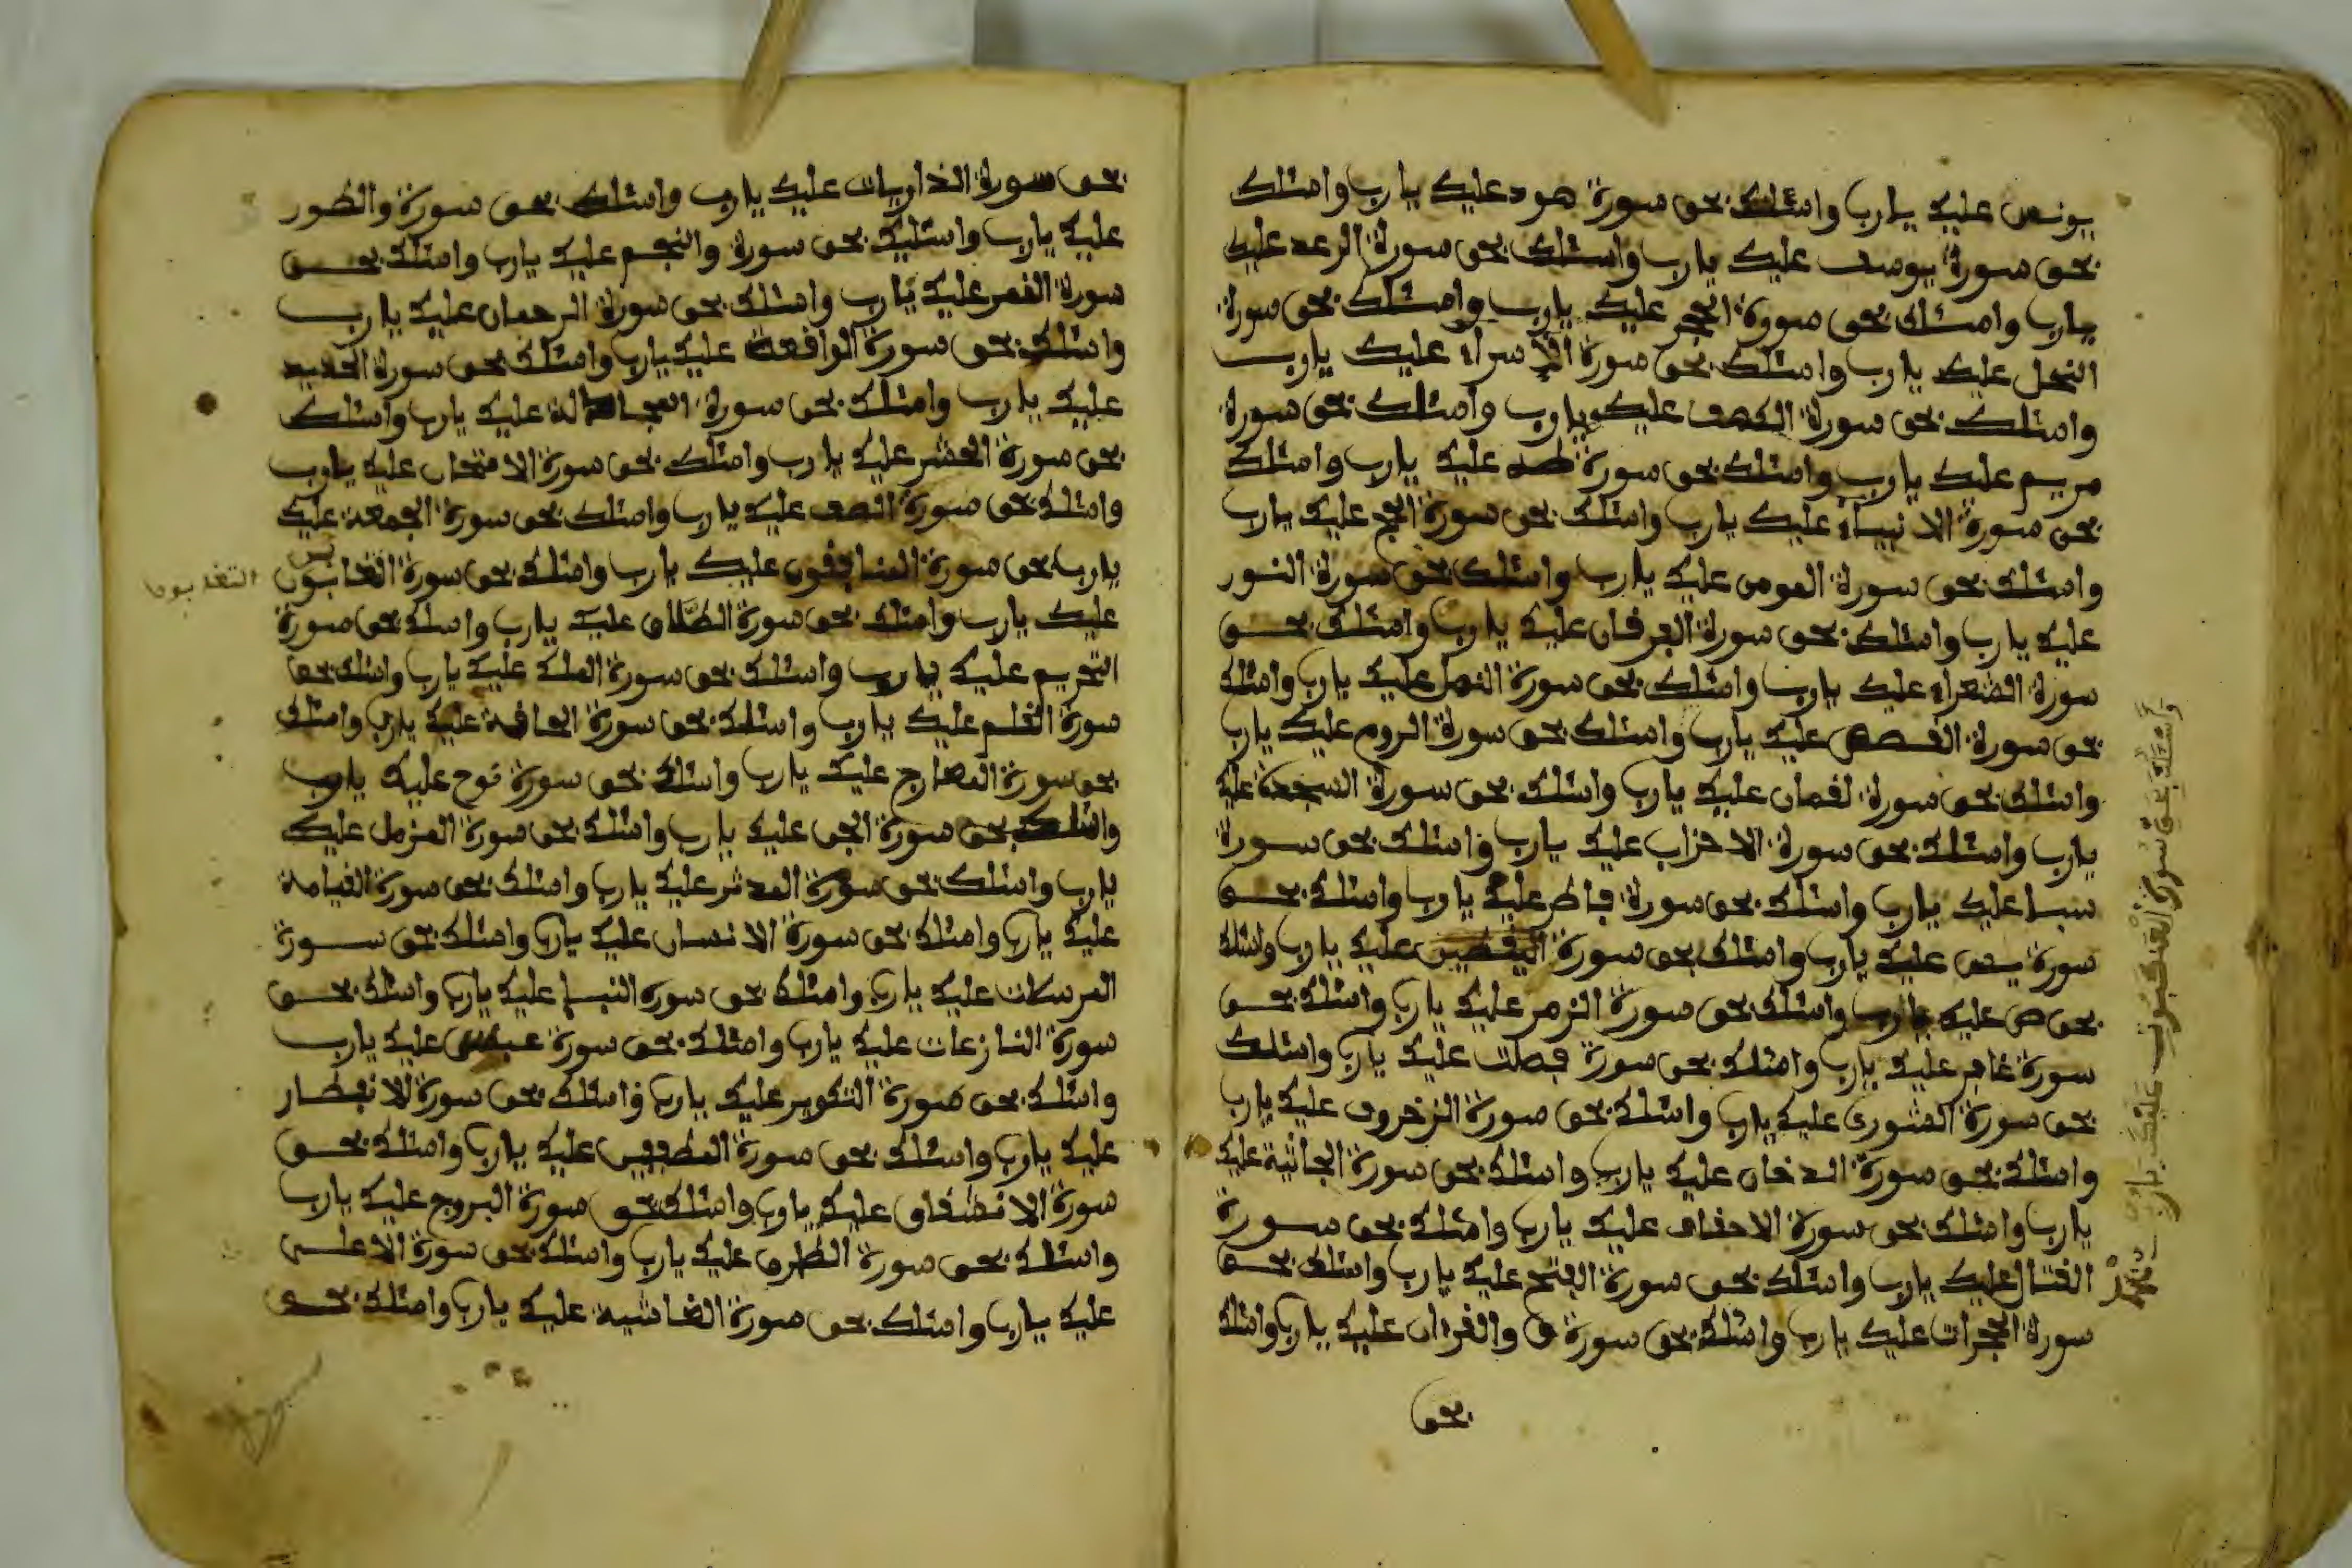 يونس عليك يارب واسئلك بحق سورة هود عليك يارب واسئلك
بحق سورة يوسف عليك يارب واسئلك بحق سورة الرعد عليك
يارب واسئلك بحق سورة الحجر عليك يارب واسئلك بحق سورة
النحل عليك يارب واسئلك بحق سورة الاسراء عليك يارب
واسئلك بحق سورة الكهف عليك يارب واسئلك بحق سورة
مريم عليك يارب واسئلك بحق سورة طه عليك يارب واسئلك
بحق سورة الانبياء عليك يارب واسئلك بحق سورة الحج عليك يارب
واسئلك بحق سورة المومن عليك يارب واسئلك بحق سورة النور
عليك يارب واسئلك بحق سورة الفرقان عليك يارب واسئلك بحق
سورة الشعراء عليك يارب واسئلك بحق سورة النمل عليك يارب واسئلك
بحق سورة القصص عليك يارب واسئلك بحق سورة الروم عليك يارب
واسئلك بحق سورة لقمان عليك يارب واسئلك بحق سورة السجدة عليك
يارب واسئلك بحق سورة الاحزاب عليك يارب واسئلك بحق سورة
سبا عليك يارب واسئلك بحق سورة فاطر عليك يارب واسئلك بحق
سورة يس عليك يارب واسئلك بحق سورة اليقطين عليك يارب واسئلك
بحق ص عليك يارب واسئلك بحق سورة الزمر عليك يارب واسئلك بحق
سورة غافر عليك يارب واسئلك بحق سورة فصلت عليك يارب واسئلك
بحق سورة الشورى عليك يارب واسئلك بحق سورة الزخروف عليك يارب
واسئلك بحق سورة الدخان عليك يارب واسئلك بحق سورة الجاثية عليك
يارب واسئلك بحق سورة الاحقاف عليك يارب واسئلك بحق سورة
القتال عليك يارب واسئلك بحق سورة الفتح عليك يارب واسئلك بحق
سورة الحجرات عليك يارب واسئلك بحق سورة ق والقرءان عليك يارب واسئلك
بحق
وَاسْئَلُكَ بحق سورة العنكبوت عليك يارب
بحق سورة الذاريات عليك يارب واسئلك بحق سورة والطور
عليك يارب واسئلك بحق سورة والنجم عليك يارب واسئلك بحق
سورة القمر عليك يارب واسئلك بحق سورة الرحمان عليك يارب
واسئلك بحق سورة الواقعة عليك يارب واسئلك بحق سورة الحديد
عليك يارب واسئلك بحق سورة المجادلة عليك يارب واسئلك
بحق سورة الحشر عليك يارب واسئلك بحق سورة الامتحان عليك يارب
واسئلك بحق سورة الصف عليك يارب واسئلك بحق سورة الجمعة عليك
يارب بحق سورة المنافقون عليك يارب واسئلك بحق سورة التغابون
التغابون
عليك يارب واسئلك بحق سورة الطلاق عليك يارب واسئلك بحق سورة
التحريم عليك يارب واسئلك بحق سورة الملك عليك يارب واسئلك بحق
سورة القلم عليك يارب واسئلك بحق سورة الحاقة عليك يارب واسئلك
بحق سورة المعارج عليك يارب واسئلك بحق سورة نوح عليك يارب
واسئلك بحق سورة الجن عليك يارب واسئلك بحق سورة المزمل عليك
يارب واسئلك بحق سورة المدثر عليك يارب واسئلك بحق سورة القيامة
عليك يارب واسئلك بحق سورة الانسان عليك يارب واسئلك بحق سورة
المرسلات عليك يارب واسئلك بحق سورة النبا عليك يارب واسئلك بحق
سورة النازعات عليك يارب واسئلك بحق سورة عبس عليك يارب
واسئلك بحق سورة التكوير عليك يارب واسئلك بحق سورة الانفطار
عليك يارب واسئلك بحق سورة المطففين عليك يارب واسئلك بحق
سورة الانشقاق عليك يارب واسئلك بحق سورة البروج عليك يارب
واسئلك بحق سورة الطرق عليك يارب واسئلك بحق سورة الاعلى
عليك يارب واسئلك بحق سورة الغاشية عليك يارب واسئلك بحق